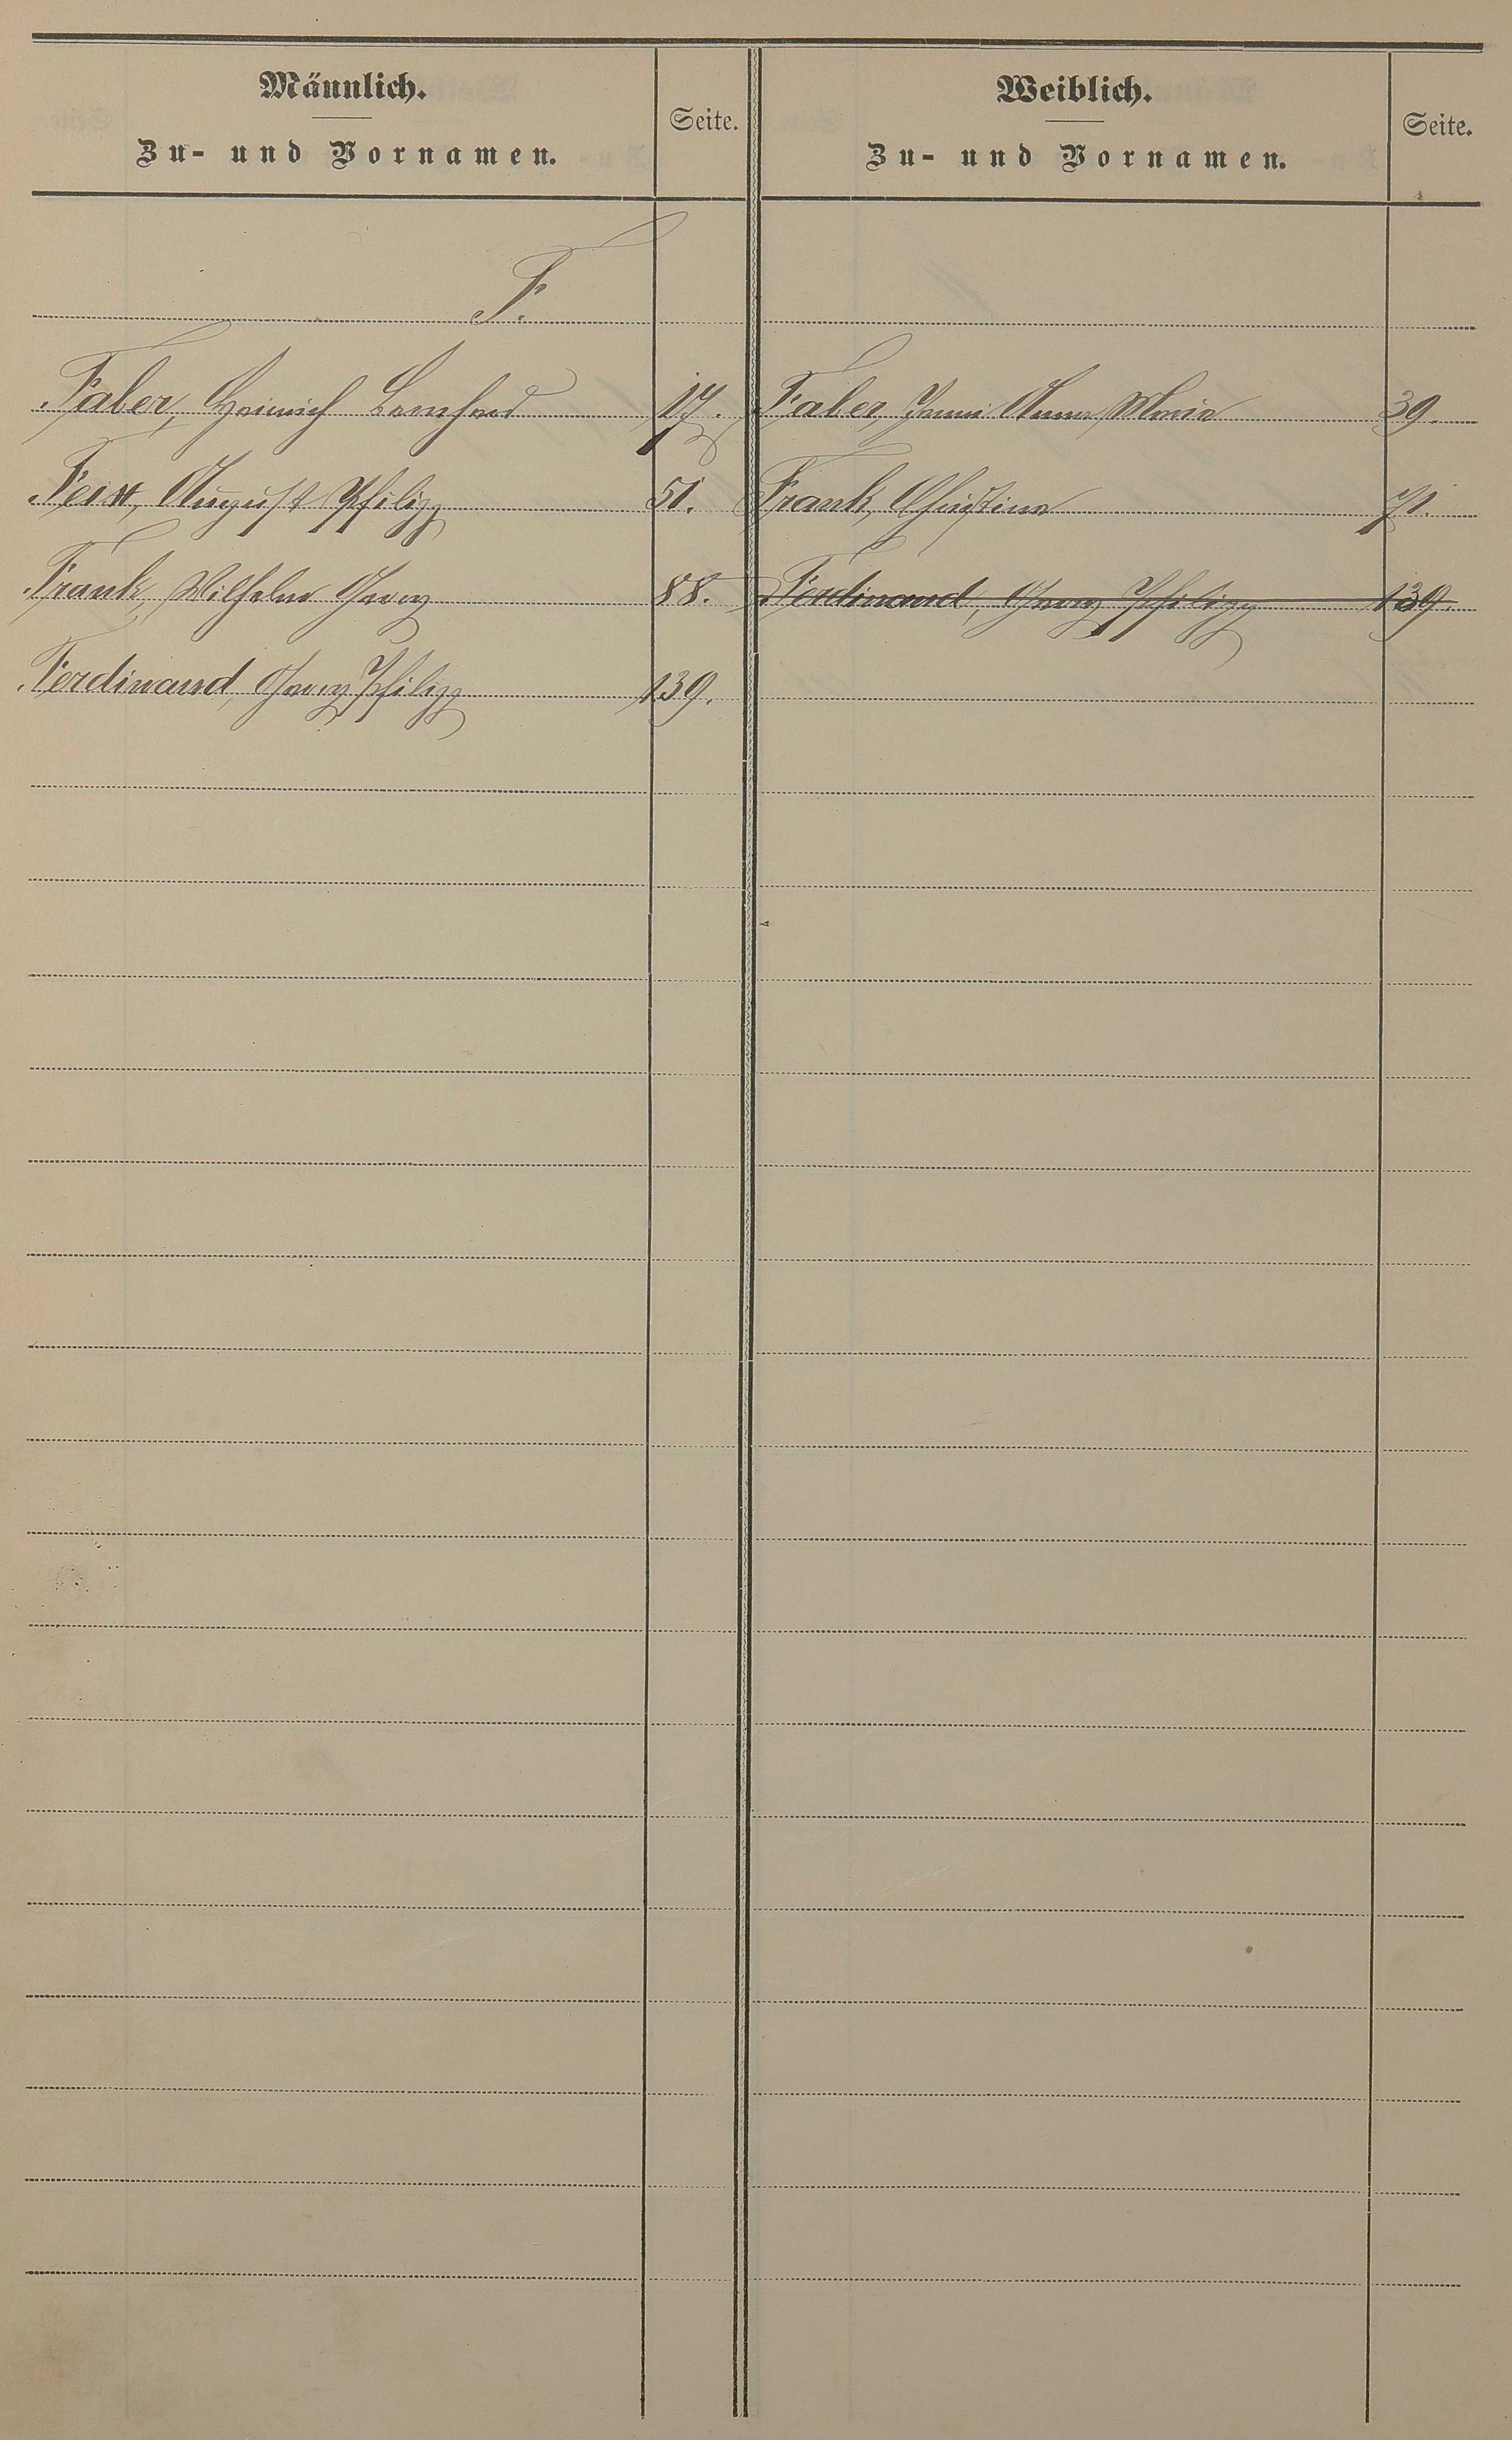 Männlich.
Zu- und Vornamen.
Seite.
Weiblich.
Zu- und Vornamen.
Seite.
F.
Faber, Heinrich Bernhard 17.
Faber, Anna Maria 39.
Feist, August Philipp 51.
Frank, Christina 71.
Frank, Wilhelm Georg 88.
Ferdinand, Georg Philipp 139.
Ferdinand, Georg Philipp 139.